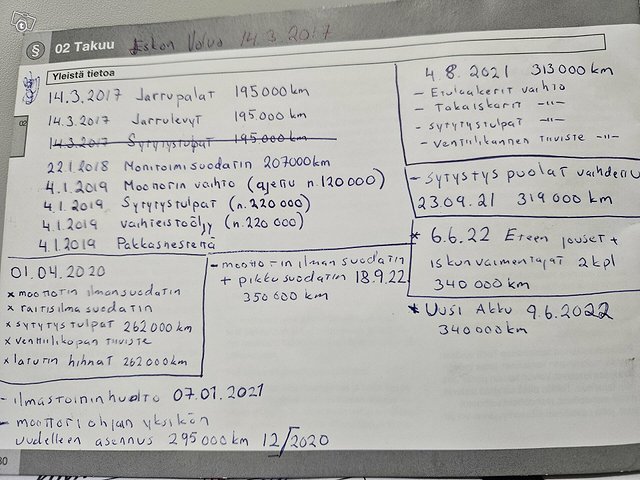 § 02 Takuu Eskon Volvo 14.3.2017
Yleistä tietoa
02
14.3.2017 Jarrupalat 195000km
14.3.2017 Jarrulevyt 195000km
14.3.2017 Sytytystulpat 195000km
22.1.2018 Monitoimisuodatin 207000km
4.1.2019 Moottorin vaihto (ajettu n.120000)
4.1.2019 Sytytystulpat (n.220000)
4.1.2019 vaihteistoöljy (n.220 000)
4.1.2019 Pakkasnestettä
01.04.2020
x moottorin ilmansuodatin
x raitisilmasuodatin
x sytytystulpat 262000km
x venttiilikopan tiiviste
x laturin hihnat 262000km
- moottorin ilman suodatin
+ pikkusuodatin 18.9.22
350 000 km
4 8. 2021 313000 km
- Etulaakerit vaihto
- Takaiskarit -"-
- sytytystulpat -"-
- venttiilikannen tiiviste -"-
- Sytystys puolat vaihdettu
23.09.21 319 000 km
* 6.6.22 Eteen jouset +
iskunvaimentajat 2kpl
340 000 km
* Uusi Akku 9.6.2022
340000km
- ilmastoinninhuolto 07.01.2021
- moottoriohjan yksikön
uudelleen asennus 295000km 12/2020
30